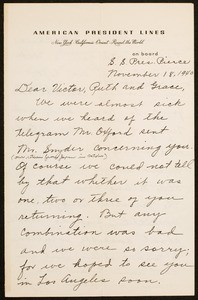 AMERICAN PRESIDENT LINES
New York California Orient Round the World
on board
S. S. Pres. Pierce
November 18, 1940
Dear Victor, Ruth and Grace,
We were almost sick
when we heard of the
telegram Mr. Offord sent
Mr. Snyder concerning you.
Of course we could not tell
by that whether it was
one, two or three of you
returning. But any
combination was bad
and we were so sorry;
for we hoped to see you
in Los Angeles soon.